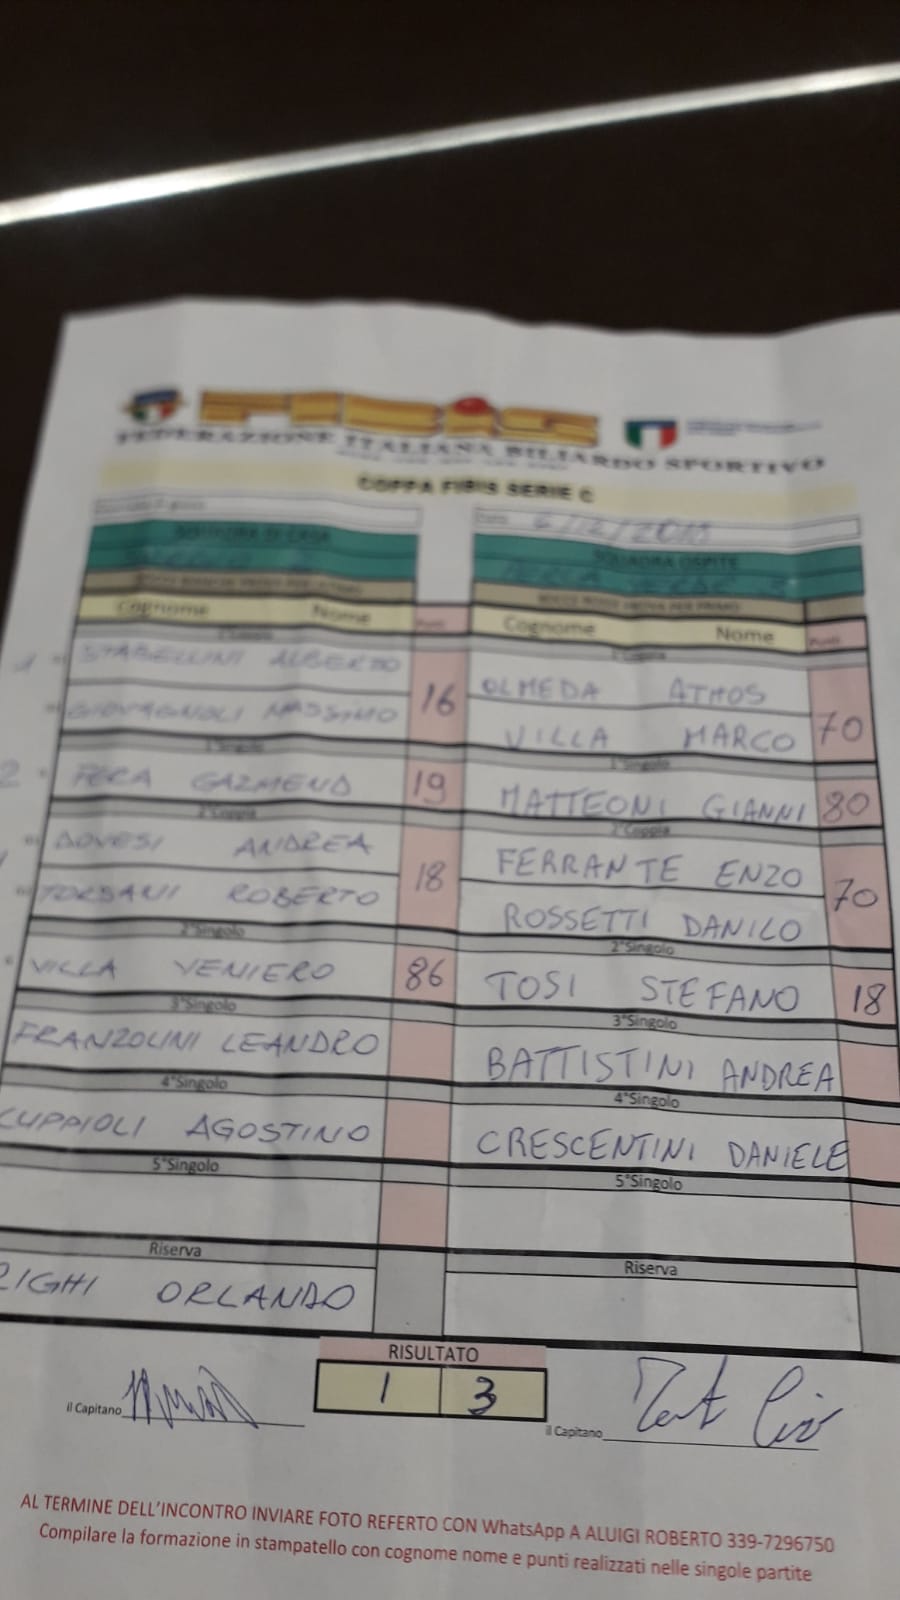 FIBIS
FEDERAZIONE ITALIANA BILIARDO SPORTIVO
COPPA FIBIS SERIE C
SQUADRA DI CASA
SQUADRA OSPITE
Cognome Nome Punti Cognome Nome Punti
STABELLINI ALBERTO 16 OLMEDA ATHOS 70
GIOVAGNOLI MASSIMO VILLA MARCO
1°Singolo 1°Singolo
2 FERA GAZMEND 19 MATTEONI GIANNI 80
2°Coppia 2°Coppia
DOVESI ANDREA 18 FERRANTE ENZO 70
TORSANI ROBERTO ROSSETTI DANILO
2°Singolo 2°Singolo
VILLA VENIERO 86 TOSI STEFANO 18
3°Singolo 3°Singolo
FRANZOLINI LEANDRO BATTISTINI ANDREA
4°Singolo 4°Singolo
CUPPIOLI AGOSTINO CRESCENTINI DANIELE
5°Singolo 5°Singolo
Riserva Riserva
RIGHI ORLANDO
RISULTATO
il Capitano 1 3 il Capitano
AL TERMINE DELL'INCONTRO INVIARE FOTO REFERTO CON WhatsApp A ALUIGI ROBERTO 339-7296750
Compilare la formazione in stampatello con cognome nome e punti realizzati nelle singole partite